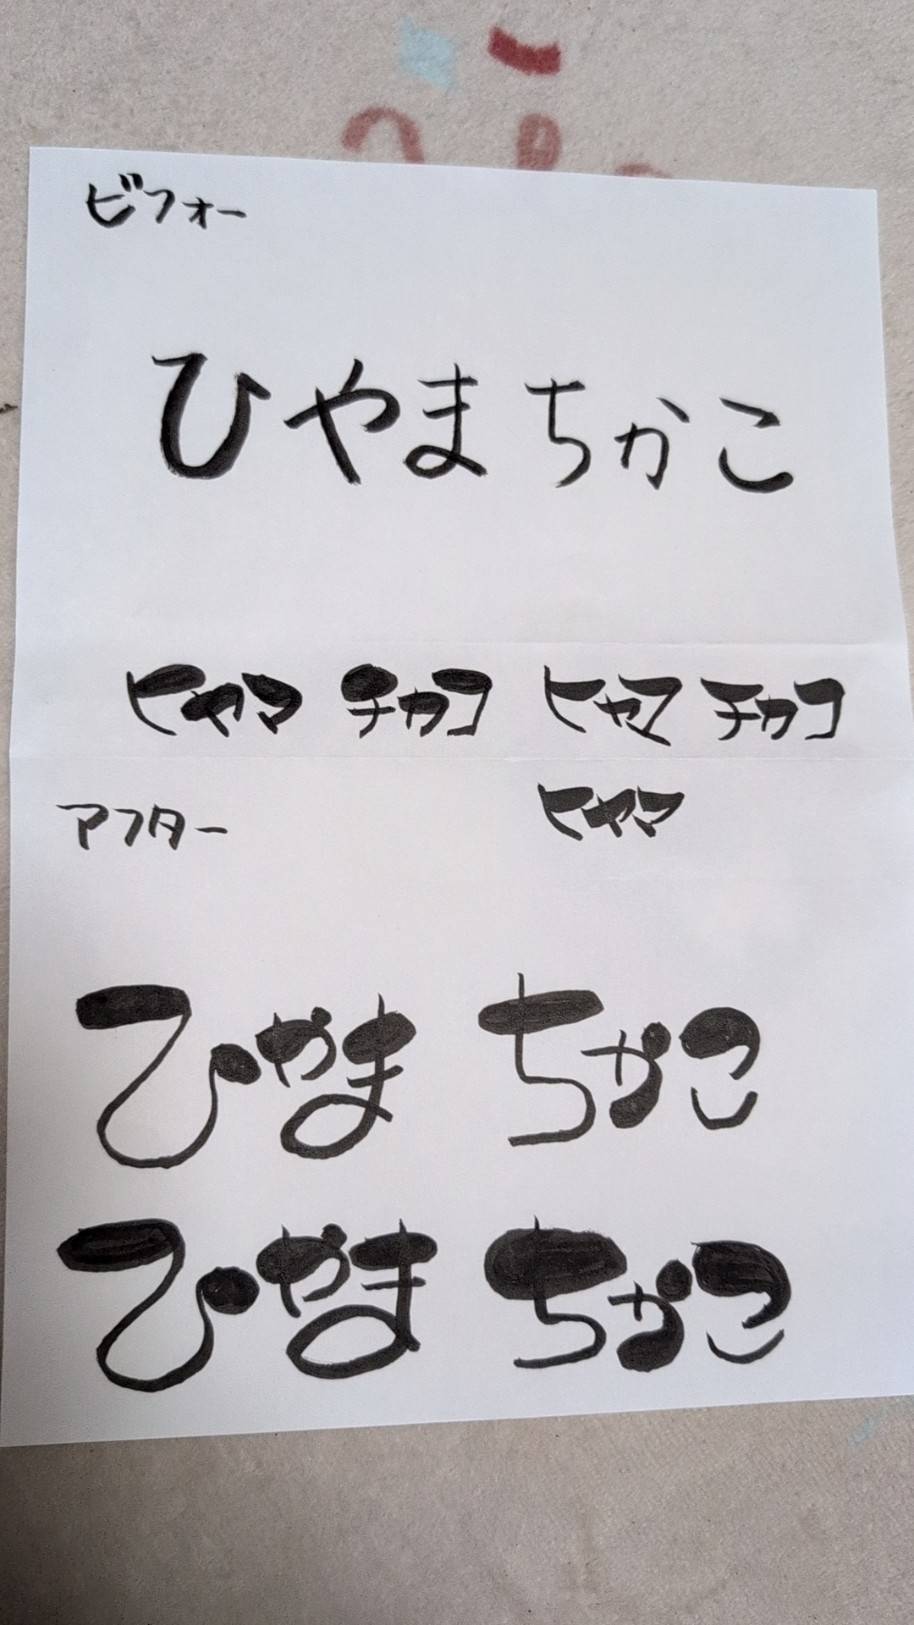 ビフォー
ひやま ちかこ
ヒヤマ チカコ ヒヤマ チカコ
ヒヤマ
アフター
ひやま ちかこ
ひやま ちかこ